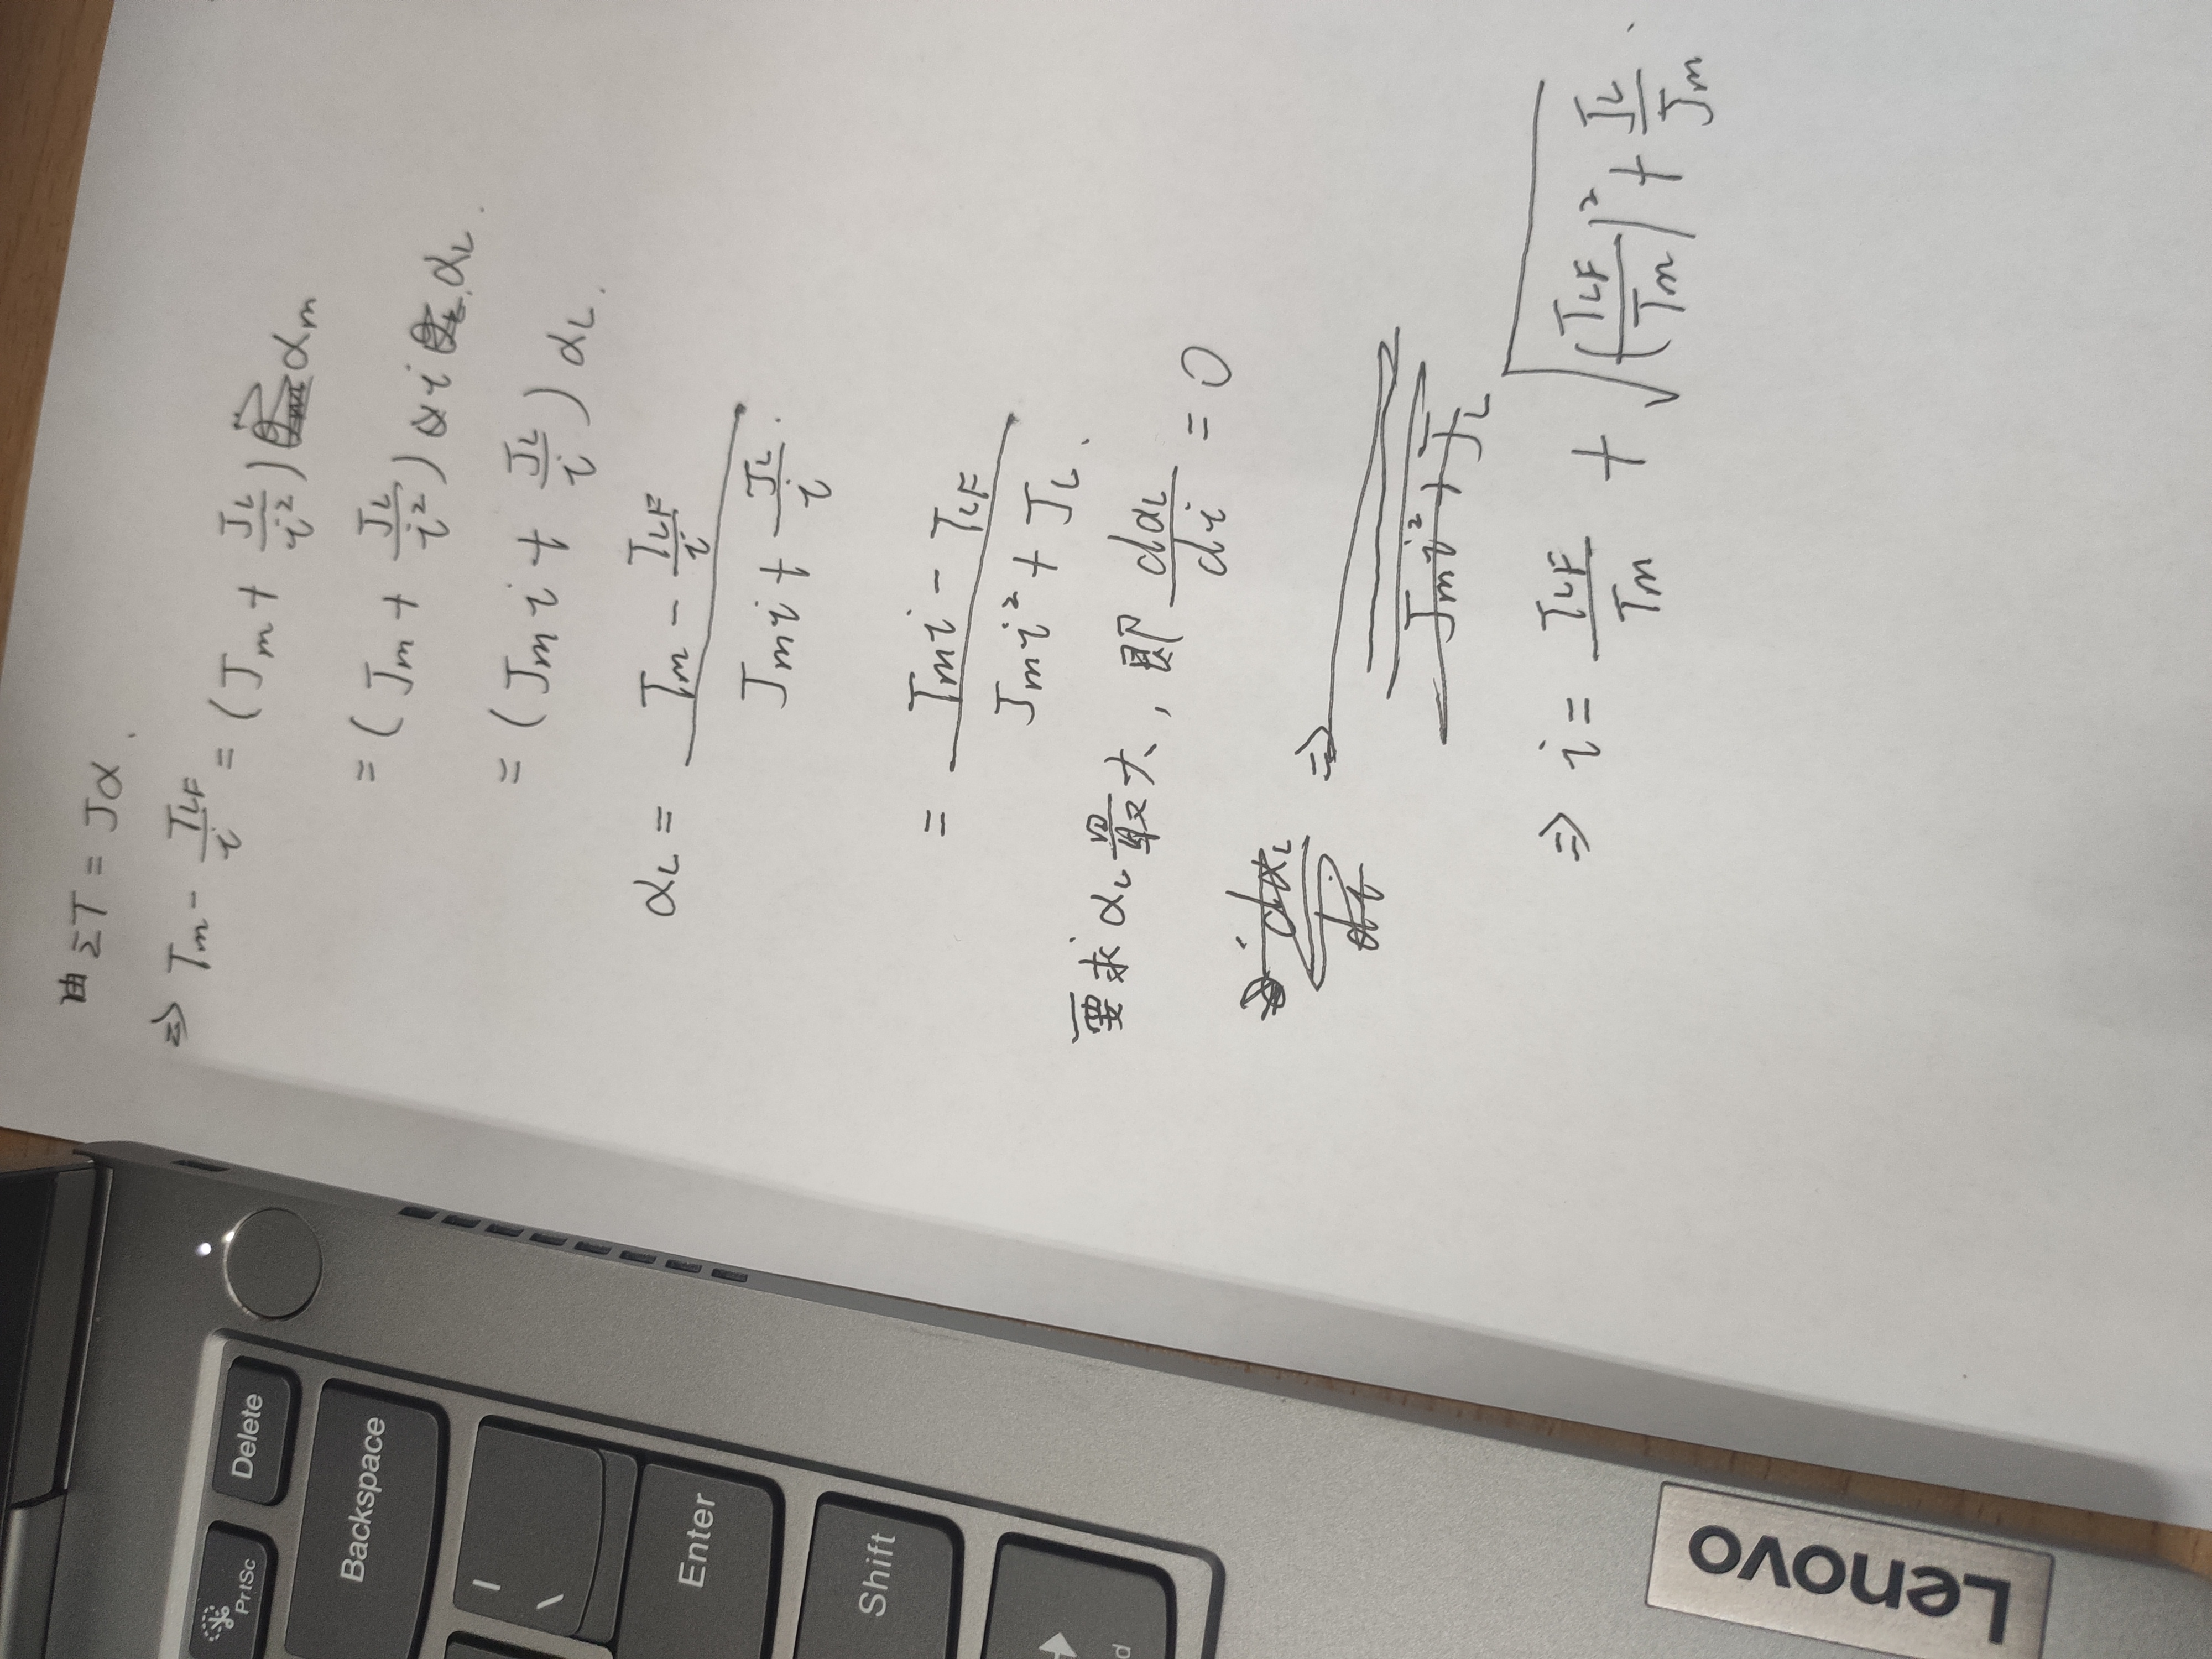 PrtSc
Delete
Backspace
|
\
Enter
Shift
d
Lenovo
由 ΣT = Jα.
⇒ Tm - TLF/i = (Jm + JL/i²) αm
= (Jm + JL/i²) i αL.
= (Jm i + JL/i) αL.
αL = (Tm - TLF/i)/(Jm i + JL/i).
= (Tm i - TLF)/(Jm i² + JL).
要求 αL 最大, 即 dαL/di = 0
dαL/di ⇒
Jm i² + JL
⇒ i = TLF/Tm + √((TLF/Tm)² + JL/Jm).